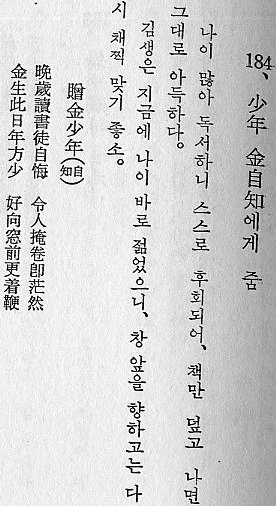 184、少年 金自知에게 줌
나이 많아 독서하니 스스로 후회되어、책만 덮고 나면
그대로 아득하다。
김생은 지금에 나이 바로 젊었으니、창 앞을 향하고는 다
시 채찍 맞기 좋소。
贈金少年(自知)
晩歲讀書徒自悔 令人掩卷卽茫然
金生此日年方少 好向窓前更着鞭